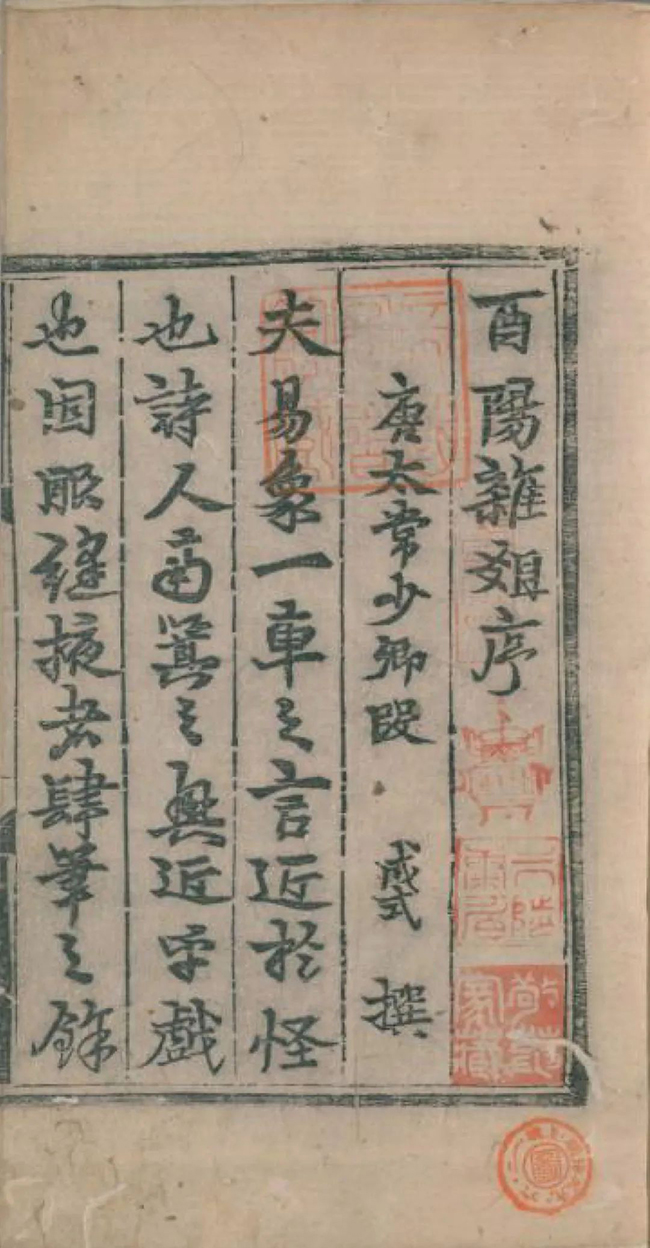 酉陽雜俎序
唐太常少卿段　成式　撰
夫易象一車之言近於怪
也詩人南箕之興近乎戲
也固服縫掖者肆筆之餘